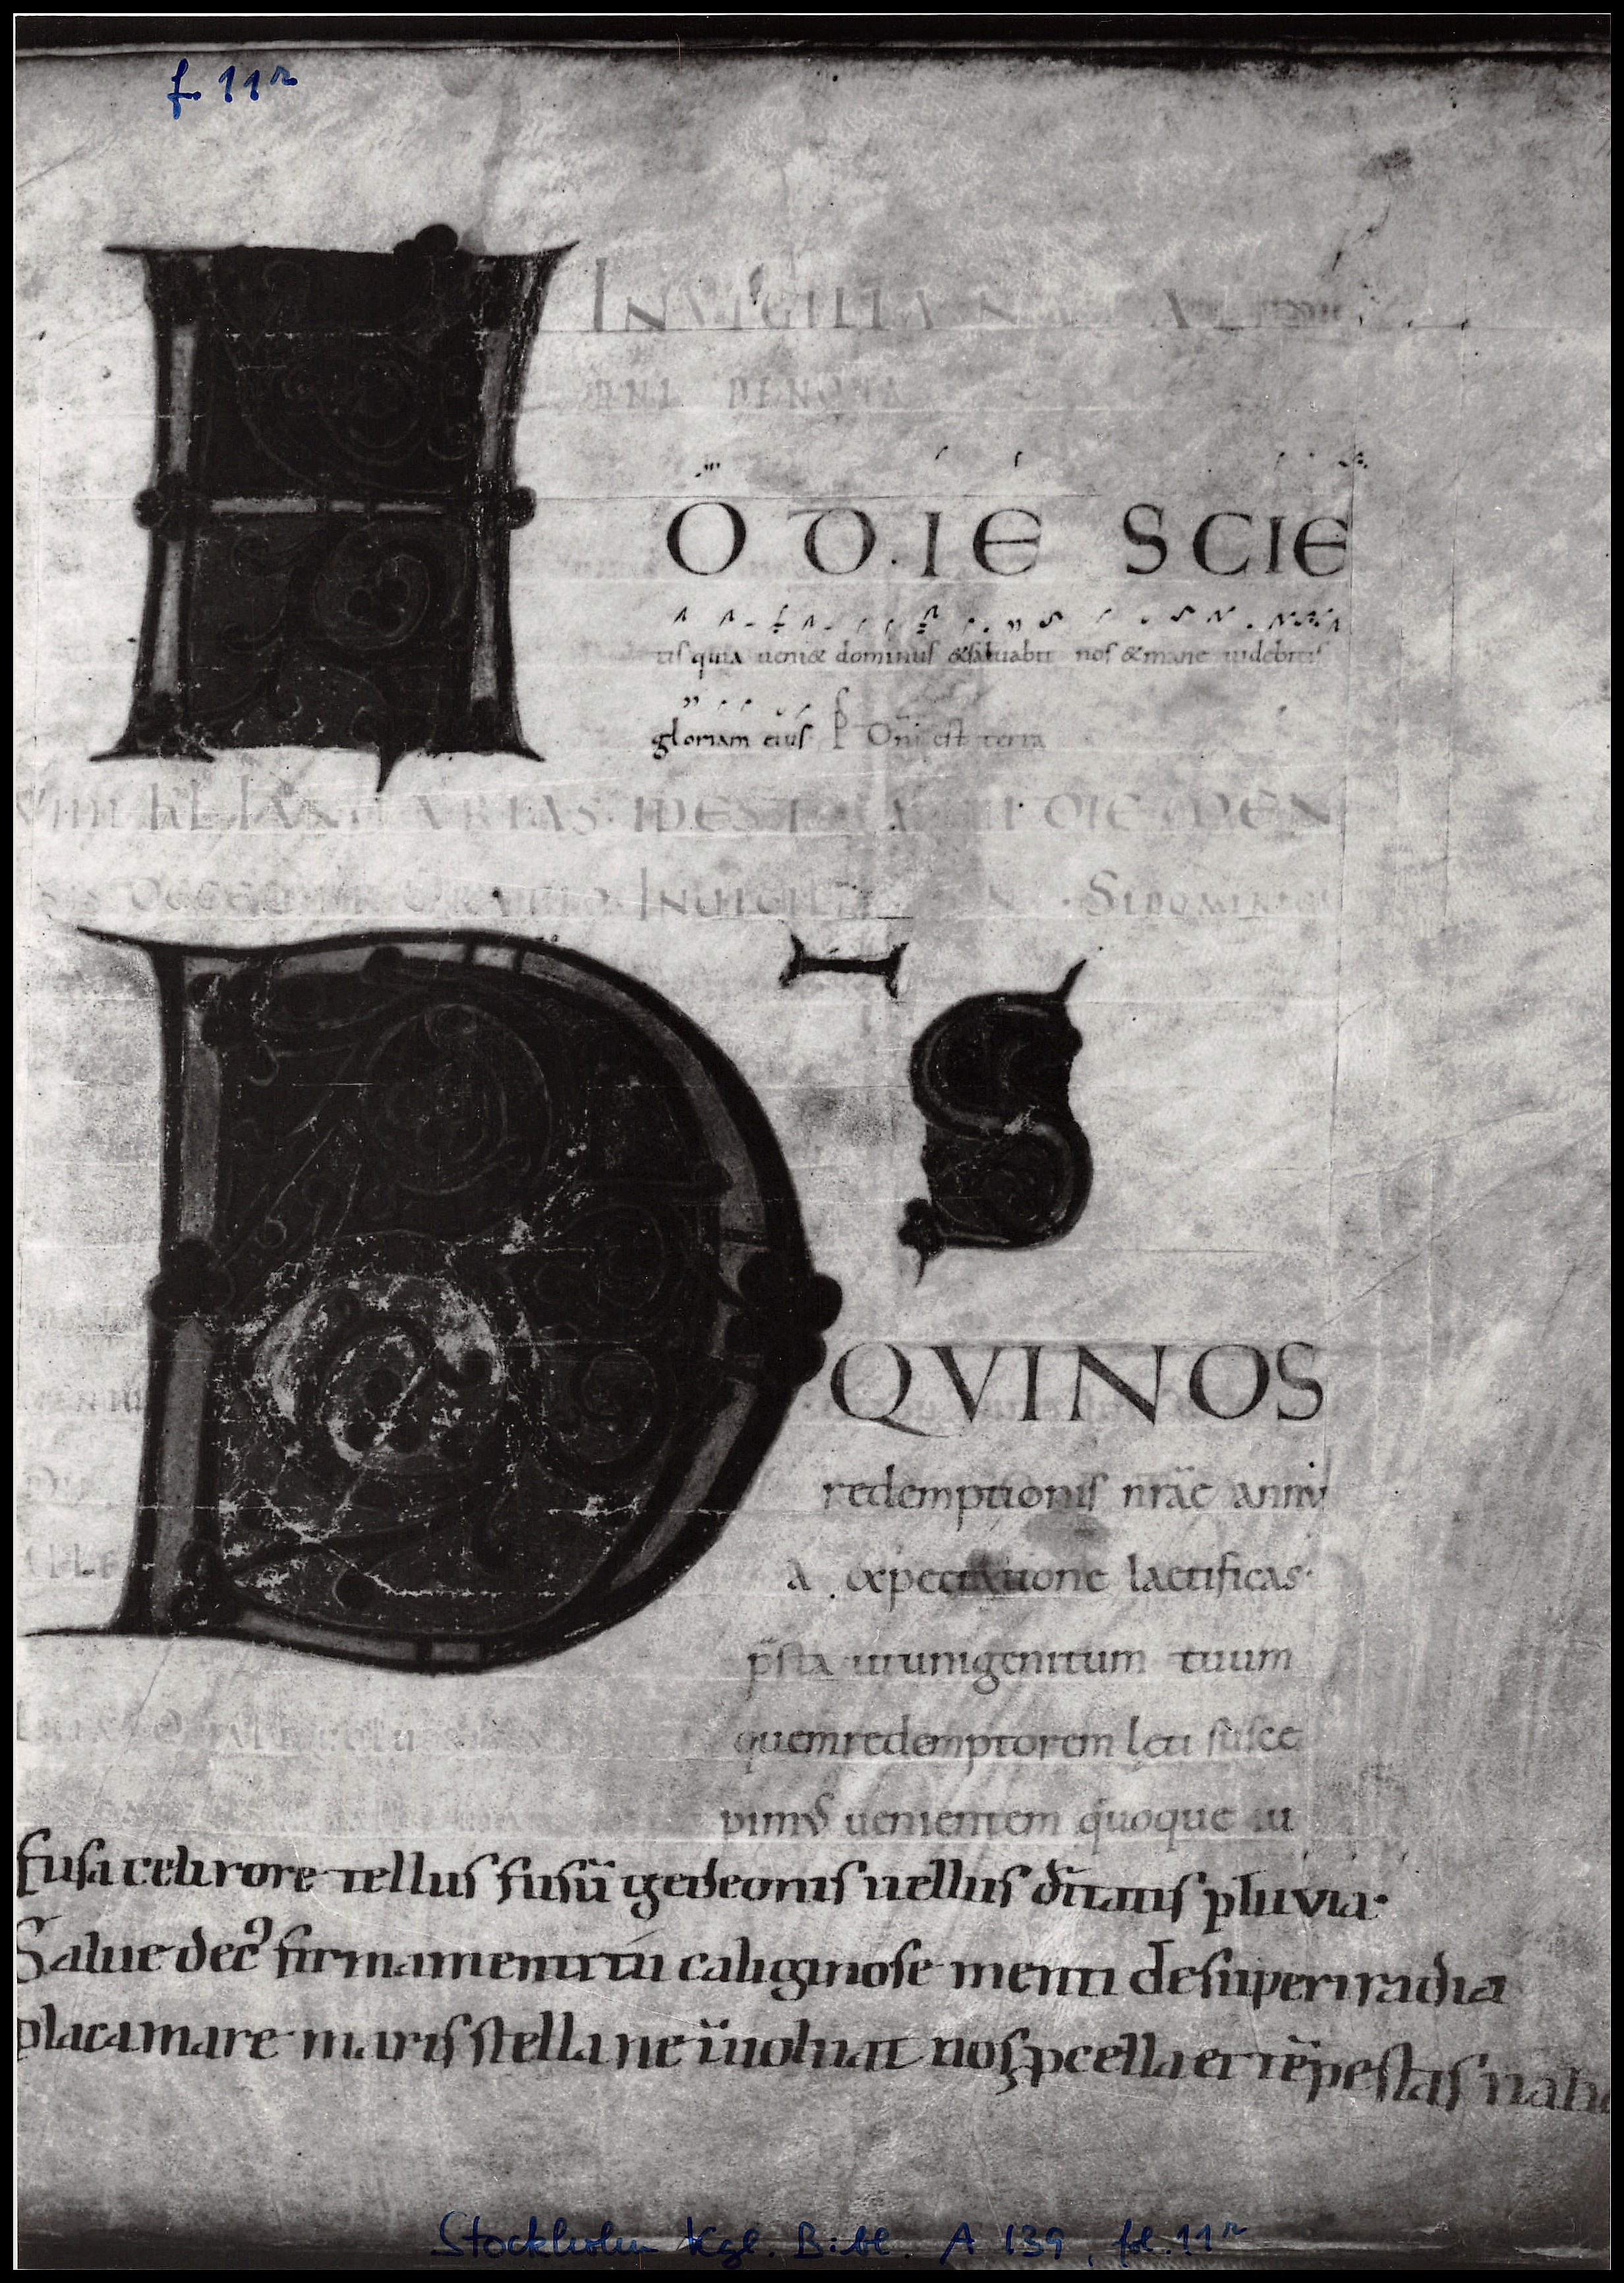 f. 11r
IN VIGILIA NAT AL
DNI DE NONA
HODIE SCIE
tis quia ueni& dominus &saluabit nos &mane uidebitis
gloriam eius P Dni est terra
VIIII KL IANVARIAS IDEST DIE MEN
SI DOMINI
DS
QVINOS
redemptionis nrae annu
a expectatione laetificas·
psta utunigenitum tuum
quemredemptorem leti susce
pimus uenientem quoque iu
fusa celi rore tellus fusū gedeonis uellus dītatis pluvia·
Salue dec9 firmamenti tu caliginose menti desuper irradia
placa mare maris stella ne īuoluat nos pcella et tēpestas
Stockholm Kgl. Bibl. A 139, fol. 11r